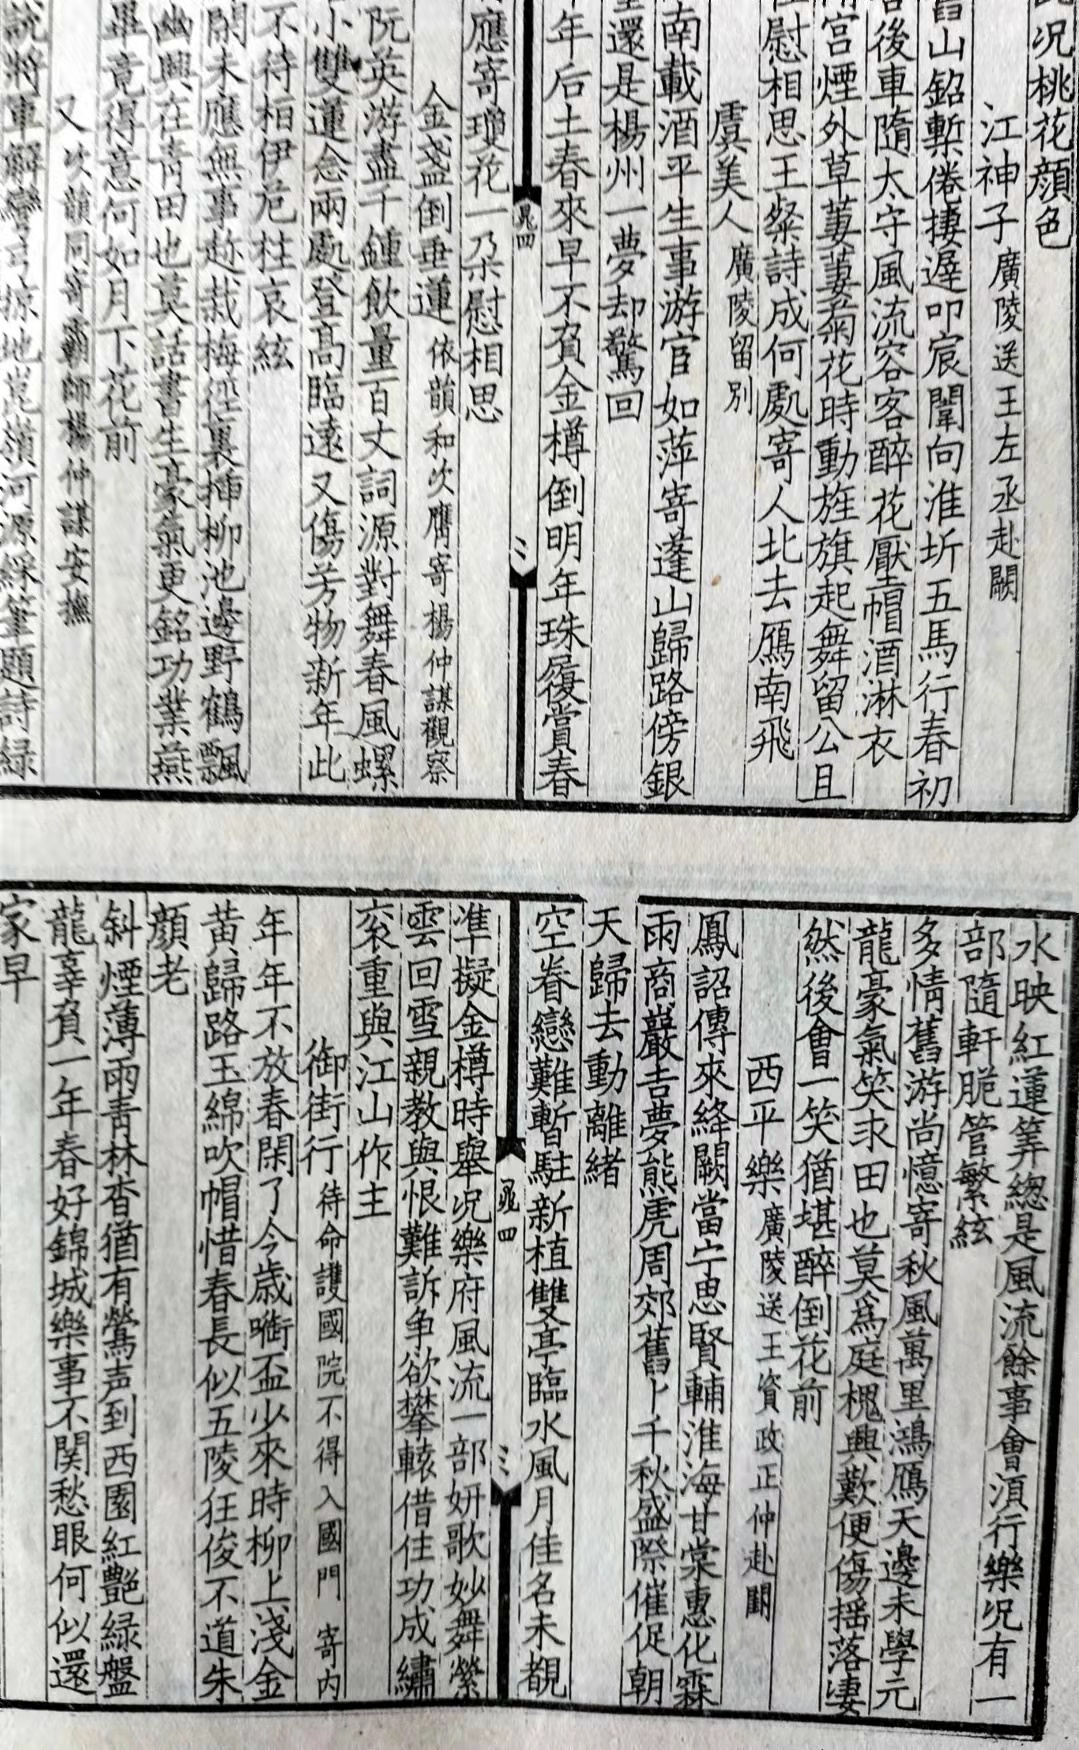 况桃花顔色
江神子廣陵送王左丞赴闕
山銘塹倦捿遲叩宸闈向淮圻五馬行春初
後車隨太守風流容客醉花壓帽酒淋衣
宮煙外草萋萋菊花時動旌旗起舞留公且
慰相思王粲詩成何處寄人北去鴈南飛
虞美人廣陵留別
南載酒平生事游宦如萍寄蓬山歸路傍銀
還是楊州一夢却驚回
年后土春來早不負金樽倒明年珠履賞春
應寄瓊花一朶慰相思
晁四
金盞倒垂蓮依韻和次膺寄楊仲謀觀察
阮英游盡千鍾飲量百丈詞源對舞春風螺
小雙蓮念兩處登髙臨遠又傷芳物新年此
不待栢伊危柱哀絃
閑未應無事趂栽梅徑裏插柳池邊野鶴飄
幽興在青田也莫話書生豪氣更銘功業燕
畢竟得意何如月下花前
又次韻同寄霸師楊仲謀安撫
說將軍解彎弓掠地崑嶺河源綵筆題詩緑
水映紅蓮筭總是風流餘事會湏行樂况有一
部隨軒脆管繁絃
多情舊游尚憶寄秋風萬里鴻鴈天邊未學元
龍豪氣笑求田也莫爲庭槐興歎便傷揺落淒
然後會一笑猶堪醉倒花前
西平樂廣陵送王資政正仲赴闕
鳳詔傳來絳闕當宁思賢輔淮海甘棠惠化霖
雨商巖吉夢熊虎周郊舊卜千秋盛際催促朝
天歸去動離緒
空眷戀難暫駐新植雙亭臨水風月佳名未覩
晁四
準擬金樽時舉况樂府風流一部妍歌妙舞縈
雲回雪親教與恨難訴争欲攀轅借住功成繡
衮重與江山作主
御街行待命護國院不得入國門寄内
年年不放春閑了今歳㗸盃少來時柳上淺金
黄歸路玉綿吹帽惜春長似五陵狂俊不道朱
顔老
斜煙薄雨青林杳猶有鶯声到西園紅艶緑盤
龍辜負一年春好錦城樂事不関愁眼何似還
家早